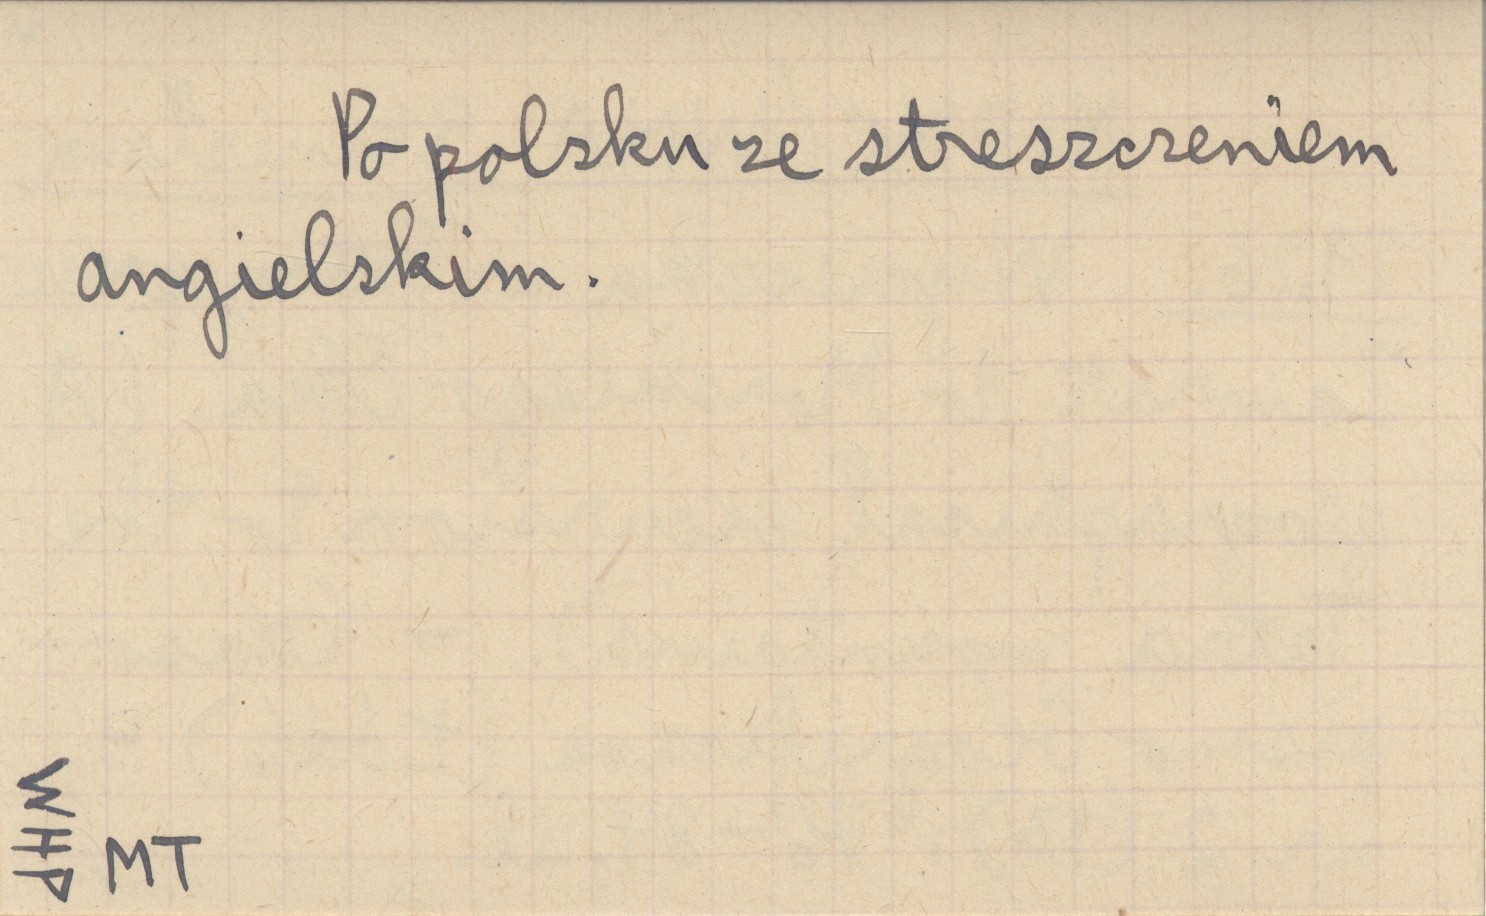 Po polsku ze streszczeniem
angielskim.
WHP
MT